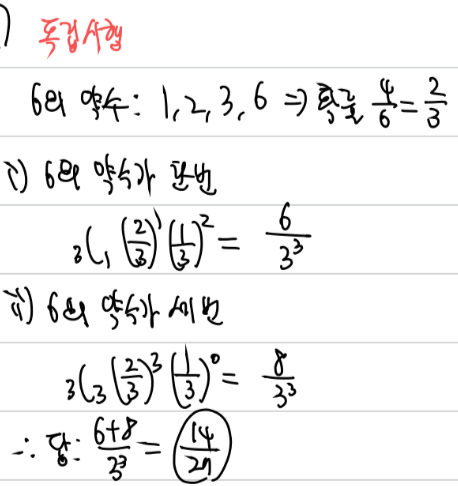 ) 독립시행
6의 약수: 1, 2, 3, 6 ⇒ 확률 4/6 = 2/3
i) 6의 약수가 한번
₃C₁ (2/3)¹ (1/3)² = 6/3³
ii) 6의 약수가 세번
₃C₃ (2/3)³ (1/3)⁰ = 8/3³
∴ 답: (6+8)/3³ = 14/27